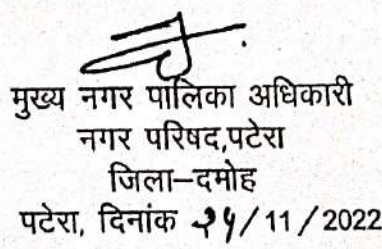 मुख्य नगर पालिका अधिकारी
नगर परिषद,पटेरा
जिला–दमोह
पटेरा, दिनांक २५/11/2022